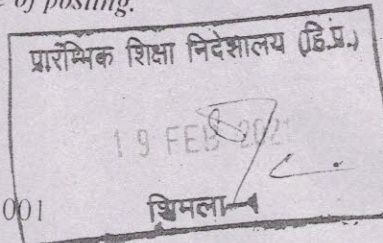 of posting.
प्रारम्भिक शिक्षा निदेशालय (हि.प्र.)
19 FEB 2021
001 शिमला-1